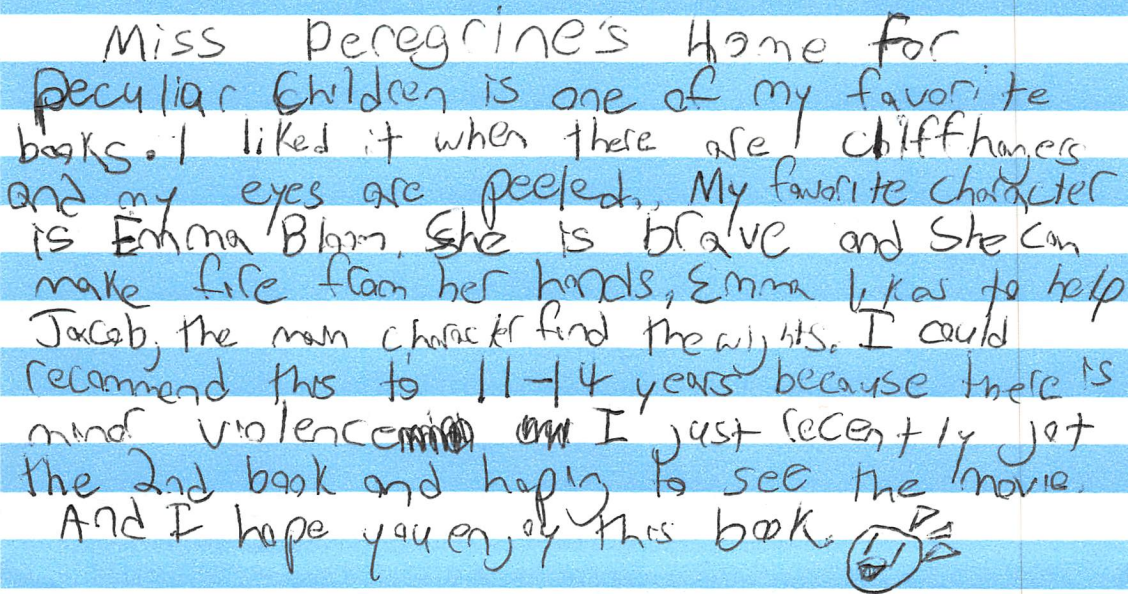 Miss Peregrine's Home for
Peculiar Children is one of my favorite
books. I liked it when there are cliffhangers
and my eyes are peeled. My favorite character
is Emma Bloom. She is brave and she can
make fire from her hands, Emma likes to help
Jacob, the main character find the wights. I could
recommend this to 11-14 years because there is
mind violence I just recently got
the 2nd book and hoping to see the movie.
And I hope you enjoy this book.